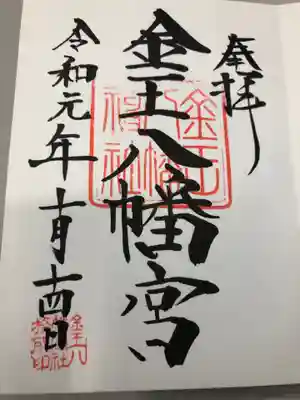 奉拝
金王八幡宮
令和元年十月十四日
金王八幡神社